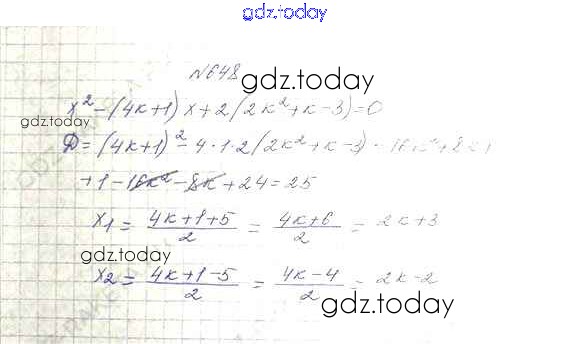 gdz.today
№648
gdz.today
x² – (4к+1) x + 2 (2к² + к – 3) = 0
gdz.today
Д = (4к+1)² – 4·1·2 (2к² + к – 3) = 16к² + 8к
+ 1 – 16к² – 8к + 24 = 25
x1 = (4к+1+5)/2 = (4к+6)/2 = 2к+3
gdz.today
x2 = (4к+1–5)/2 = (4к–4)/2 = 2к–2
gdz.today